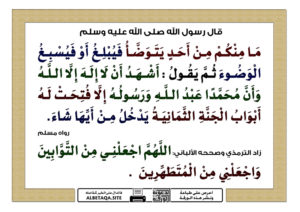 قال رسول الله صلى الله عليه وسلم
مَا مِنْكُمْ مِنْ أَحَدٍ يَتَوَضَّأُ فَيُبْلِغُ أَوْ فَيُسْبِغُ
الْوُضُوءَ ثُمَّ يَقُولُ : أَشْهَدُ أَنْ لَا إِلَهَ إِلَّا اللَّهُ
وَأَنَّ مُحَمَّدًا عَبْدُ اللَّهِ وَرَسُولُهُ إِلَّا فُتِحَتْ لَهُ
أَبْوَابُ الْجَنَّةِ الثَّمَانِيَةُ يَدْخُلُ مِنْ أَيِّهَا شَاءَ.
رواه مسلم
زاد الترمذي وصححه الألباني: اللَّهُمَّ اجْعَلْنِي مِنَ التَّوَّابِينَ
وَاجْعَلْنِي مِنَ الْمُتَطَهِّرِينَ .
احرص على طباعة
ونشر هذه الورقة
ALBETAQA.SITE